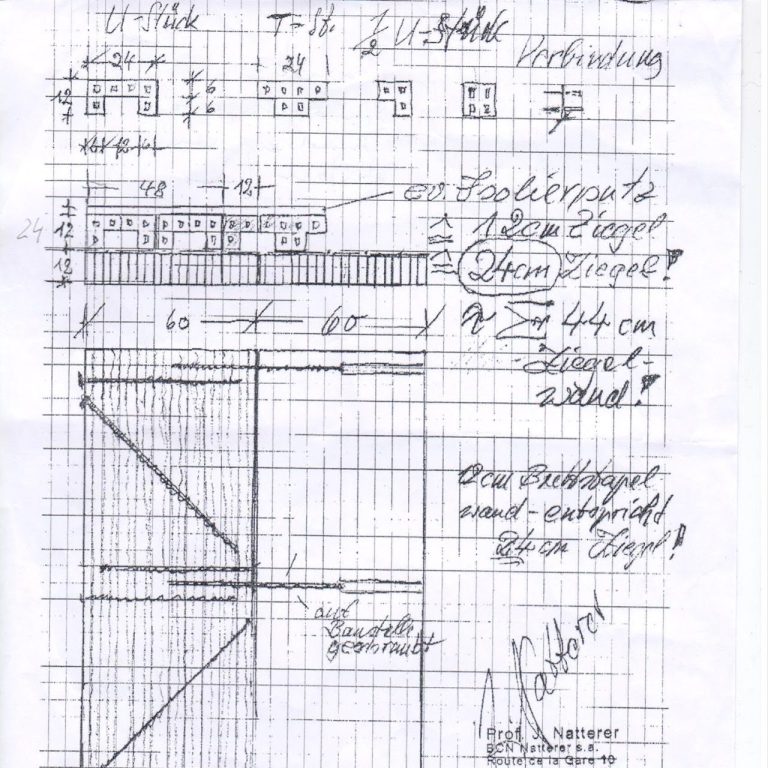 U-Stück T-St. 1/2 U-Stück
Verbindung
24 24
12 6
6
6 12 6
48 12
ev. Isolierputz
24 12
≙ 12cm Ziegel
12
≙ 24cm Ziegel!
60 60
≈ Σ 44 cm
Ziegel-
wand!
12cm Brettstapel
wand - entspricht
24 cm Ziegel!
auf
Baustelle
geschraubt
Natterer
Prof. J. Natterer
BCN Natterer s.a.
Route de la Gare 10